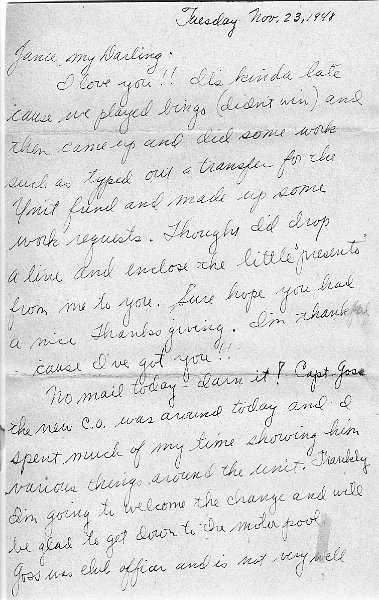 Tuesday Nov. 23, 1948
Janie my Darling.
I love you!! It's kinda late
'cause we played bingo (didn't win) and
then came up and did some work
such as typed out a transfer for the
Unit fund and made up some
work requests. Thought I'd drop
a line and enclose the little "presents"
from me to you. Sure hope you had
a nice Thanksgiving. I'm thankful
'cause I've got you!!
No mail today - darn it! Capt. Goss
the new C.O. was around today and I
spent much of my time showing him
various things around the unit. Frankly
I'm going to welcome the change and will
be glad to get down to the motor pool.
Goss was club officer and is not very well